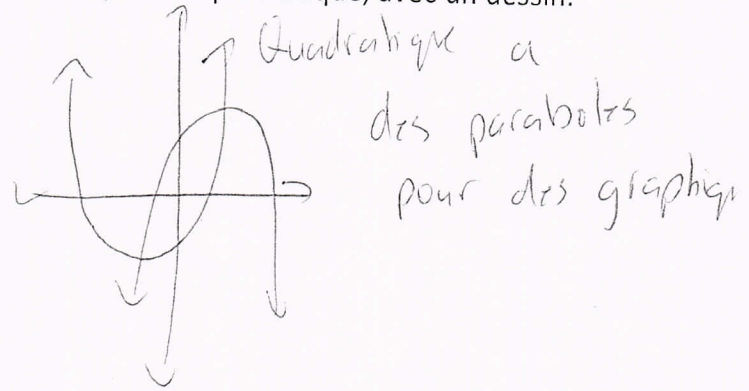 avec un dessin.
Quadratique a
des paraboles
pour des graphiq